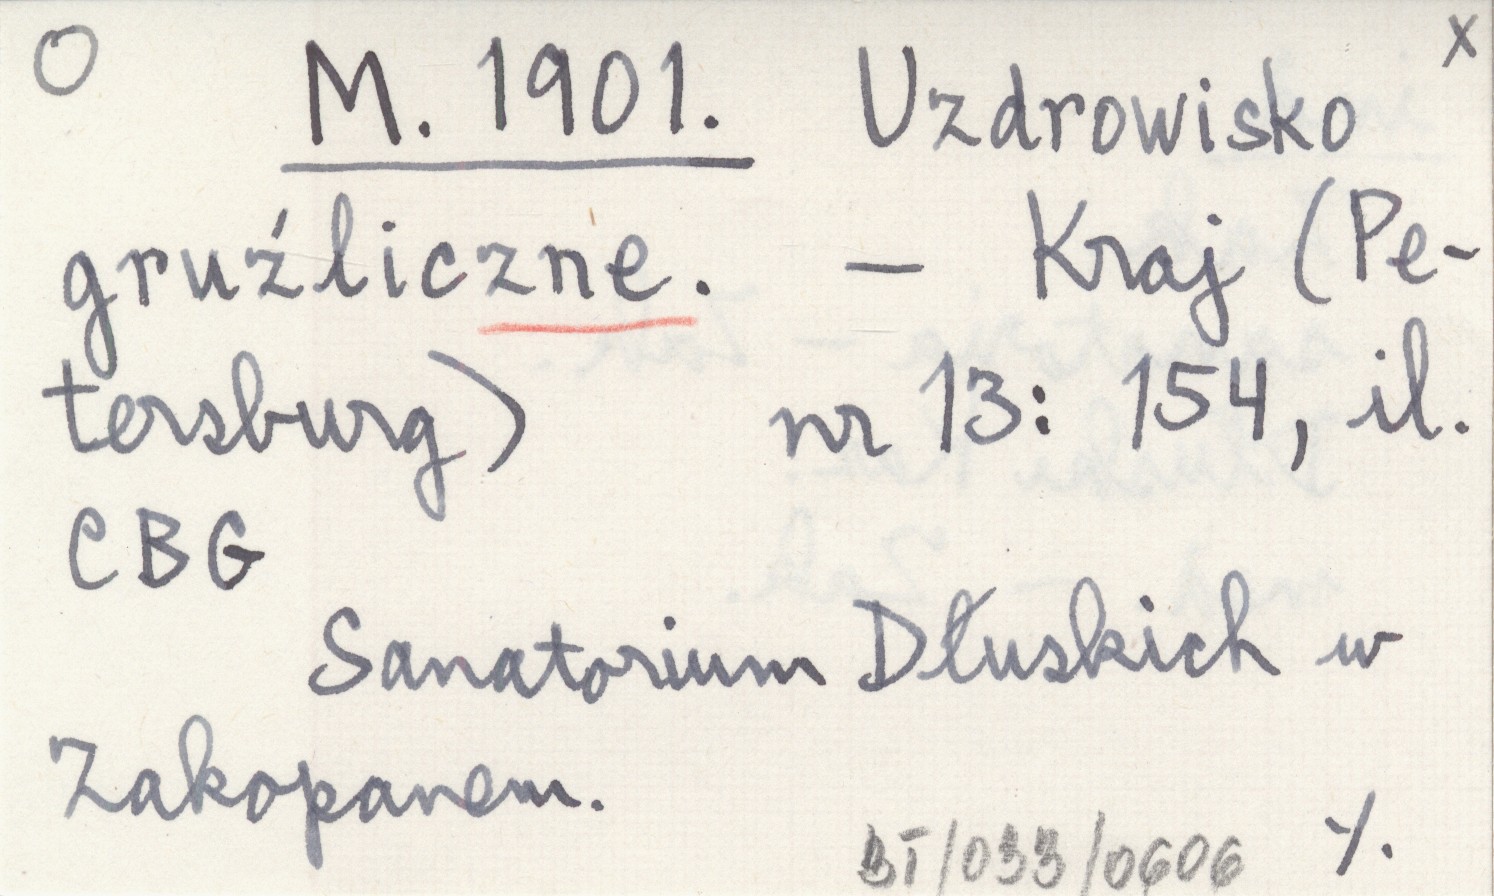 O M. 1901. Uzdrowisko x
gruźliczne. — Kraj (Pe-
tersburg) nr 13: 154, il.
CBG
Sanatorium Dłuskich w
Zakopanem.
BI/033/0606 ./.